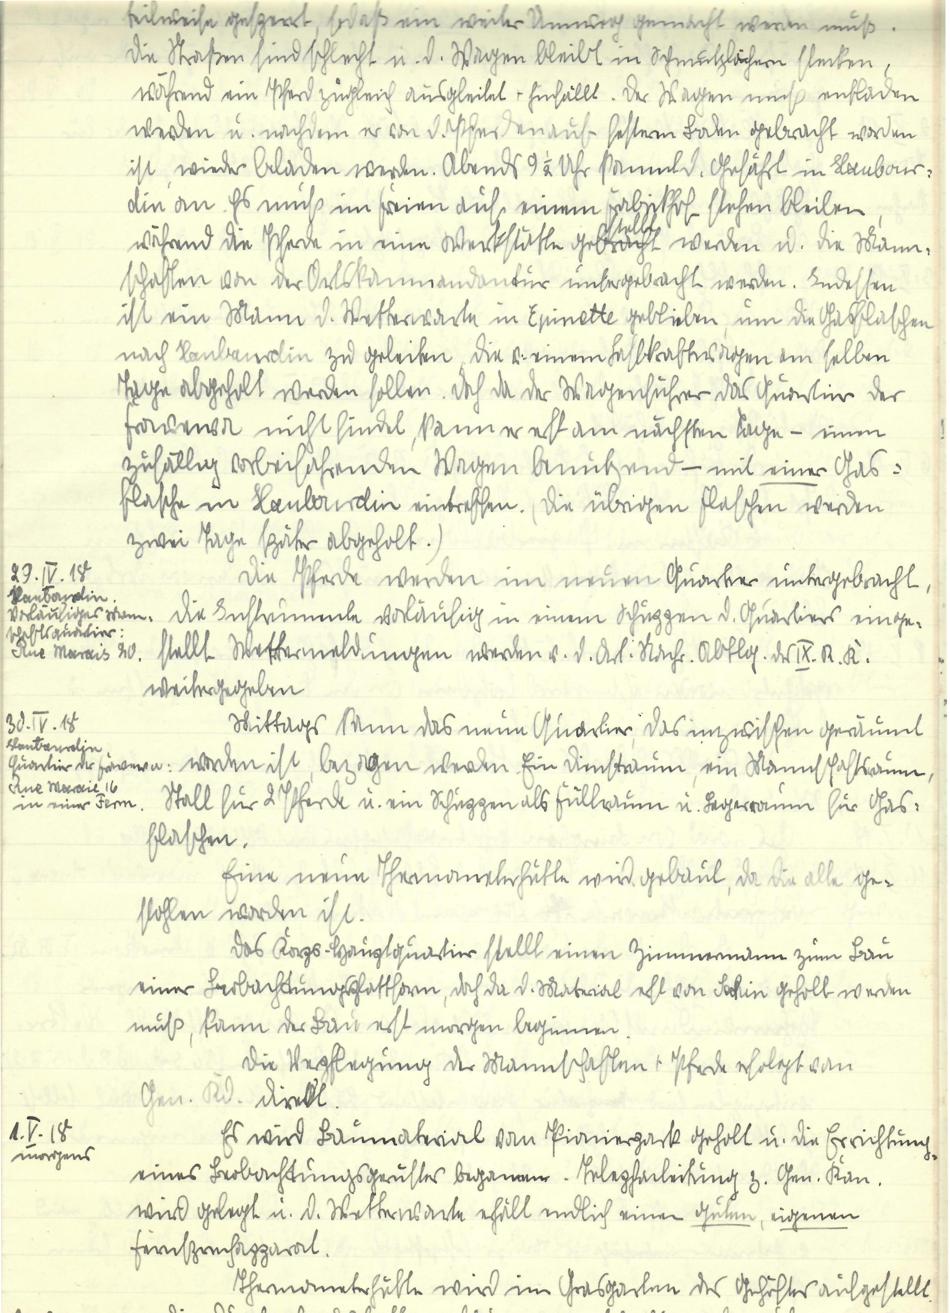 teilweise gesperrt, sodaß ein weiter Umweg gemacht werden muß.
Die Straßen sind schlecht u. d. Wagen bleibt in Schmutzlöchern stecken,
während ein Pferd zugleich ausgleitet + hinfällt. Der Wagen muß entladen
werden u. nachdem er von d. Pferden auf festern Boden gebracht worden
ist, wieder beladen werden. Abends 9½ Uhr kommt d. Gefährt in Haubour-
din an. Es muß im Freien auf einem Fabrikhof stehen bleiben,
während die Pferde in eine Werkstätte gestellt werden u. die Mann-
schaften von der Ortskommandantur untergebracht werden. Indessen
ist ein Mann d. Wetterwarte in Epinette geblieben, um die Gasflaschen
nach Haubourdin zu geleiten, die v. einem Lastkraftwagen am selben
Tage abgeholt werden sollen. Doch da der Wagenführer das Quartier der
Frawewa nicht findet, kann er erst am nächsten Tage – einen
zufällig vorbeifahrenden Wagen benutzend – mit einer Gas-
flasche in Haubourdin eintreffen. (Die übrigen Flaschen werden
zwei Tage später abgeholt.)
29. IV. 18
Haubourdin.
Vorläufiges Mann-
schaftsquartier:
Rue Marais 20.
Die Pferde werden im neuen Quartier untergebracht,
die Instrumente vorläufig in einem Schuppen d. Quartiers einge-
stellt. Wettermeldungen werden v. d. Art. Nachr. Abtlg. des IX. R. K.
weitergegeben
30. IV. 18
Haubourdin
Quartier der Frawewa:
Rue Marais 16
in einer Ferm.
Mittags kann das neue Quartier, das inzwischen geräumt
worden ist, bezogen werden. Ein Dienstraum, ein Mannschaftsraum,
Stall für 2 Pferde u. ein Schuppen als Füllraum u. Lagerraum für Gas-
flaschen.
Eine neue Thermometerhütte wird gebaut, da die alte ge-
stohlen worden ist.
Das Korps-Hauptquartier stellt einen Zimmermann zum Bau
einer Beobachtungsplattform, doch da d. Material erst von geholt werden
muß, kann der Bau erst morgen beginnen.
Die Verpflegung der Mannschaften + Pferde erfolgt vom
Gen. Kd. direkt.
1. V. 18
morgens
Es wird Baumaterial vom Pionierpark geholt u. die Errichtung
eines Beobachtungsgerüstes begonnen. Telephonleitung z. Gen. Kom.
wird gelegt u. d. Wetterwarte erhält endlich einen guten, eigenen
Fernsprechapparat.
Thermometerhütte wird im Grasgarten des Gehöftes aufgestellt.